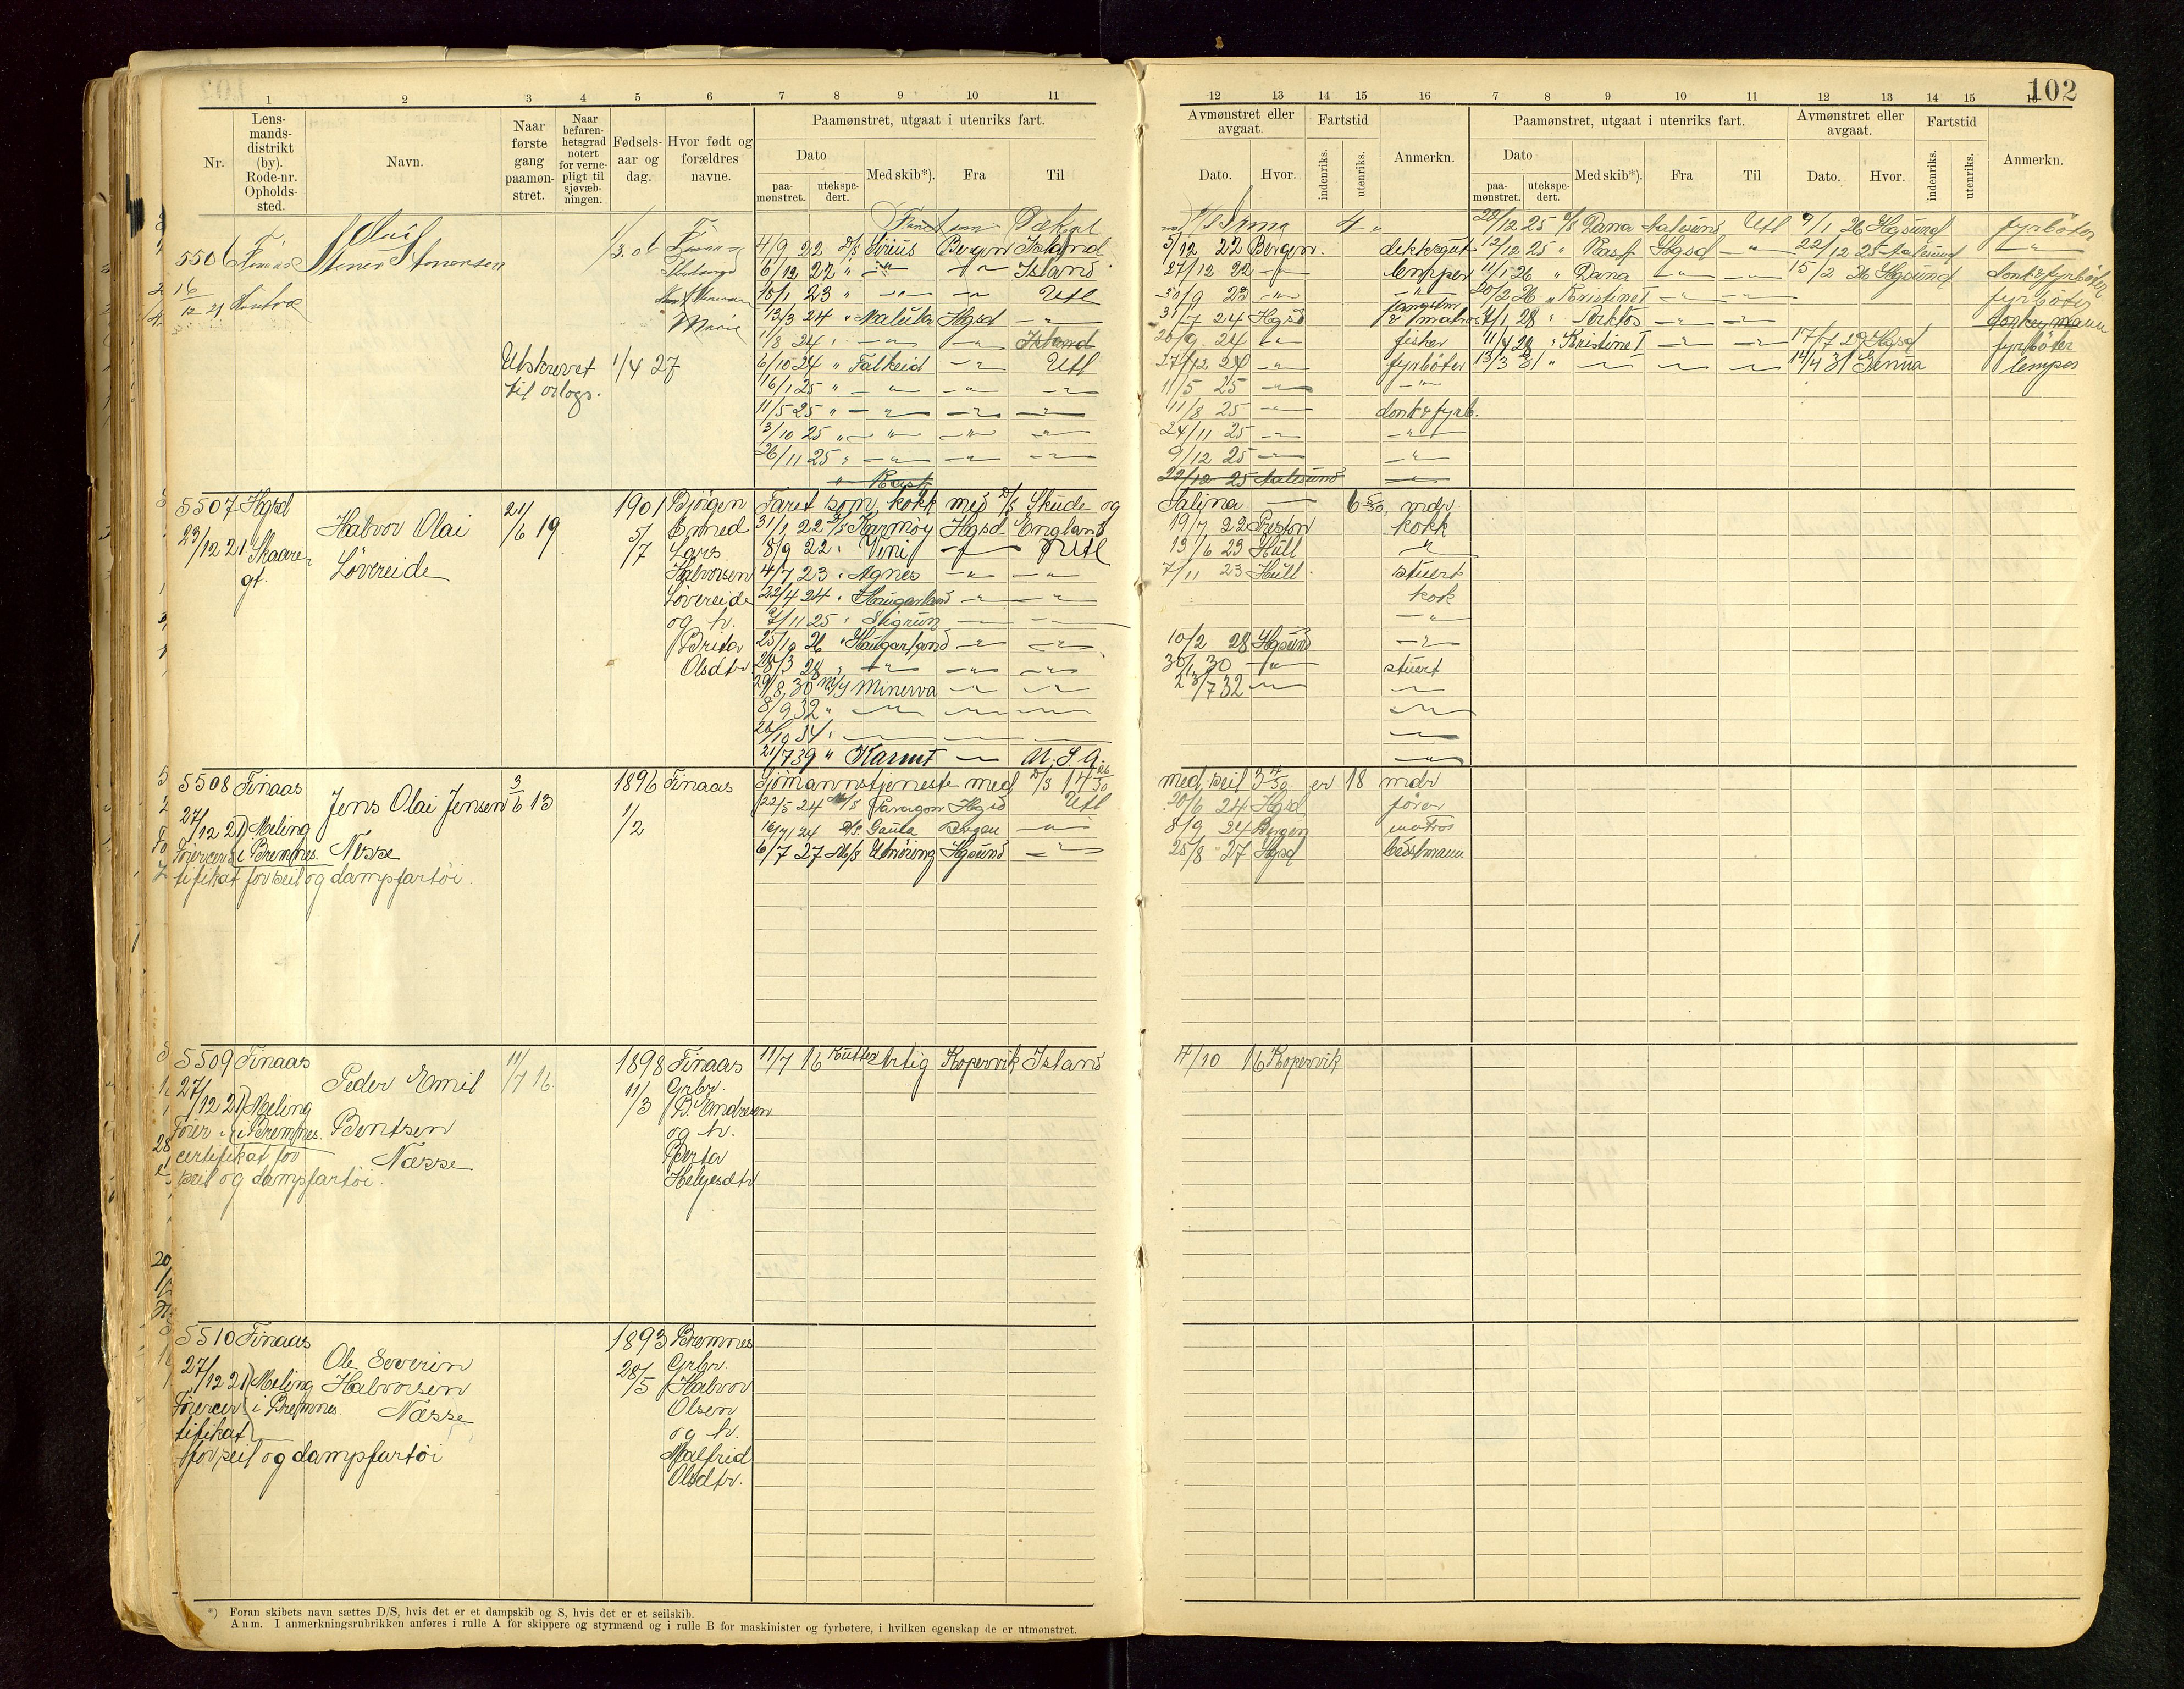 102
1 2 3 4 5 6 7 8 9 10 11 12 13 14 15 16 7 8 9 10 11 12 13 14 15 16
Nr.
Lens-
mands-
distrikt
(by).
Rode-nr.
Opholds-
sted.
Navn.
Naar
første
gang
paamøn-
stret.
Naar
befaren-
hetsgrad
notert
for verne-
pligt til
sjøvæb-
ningen.
Fødsels-
aar og
dag.
Hvor født og
forældres
navne.
Paamønstret, utgaat i utenriks fart.
Dato
paa-
mønstret.
utekspe-
dert.
Med skib*).
Fra
Til
Avmønstret eller
avgaat.
Dato.
Hvor.
Fartstid
indenriks.
utenriks.
Anmerkn.
Paamønstret, utgaat i utenriks fart.
Dato
paa-
mønstret.
utekspe-
dert.
Med skib*).
Fra
Til
Avmønstret eller
avgaat.
Dato.
Hvor.
Fartstid
indenriks.
utenriks.
Anmerkn.
5506
Olai
16/12 21
Utskrevet 1/4 27
til orlogs.
4/9 22 D/S Sirius Bergen Island 5/12 22 Bergen. dekksgut
6/12 22 " —"— —"— Island 27/12 22 —"— lemper
15/1 23 " —"— —"— Utl 30/9 23 —"—
13/3 24 " Hgsd —"— 31/7 24 Hgsd matros
1/8 24 " —"— —"— Island 20/9 24 —"— fisker
6/10 24 " Falkeid —"— Utl 27/12 24 —"— fyrbøter
16/1 25 " —"— —"— —"— 11/5 25 —"— —"—
11/5 25 " —"— —"— —"— 11/8 25 —"— donk & fyrb.
3/10 25 " —"— —"— —"— 24/11 25 —"— —"—
26/11 25 " —"— —"— —"— 9/12 25 —"— —"—
" Rask 22/12 25 Aalesund —"—
28/12 25 D/S Dana Aalesund Utl 9/1 26 Hgsund fyrbøter
12/12 25 " Rask Hgsd —"— 22/12 25 Aalesund —"—
11/1 26 " Dana —"— —"— 15/2 26 Hgsund donk & fyrbøter
20/2 26 " Kristine I —"— —"— fyrbøter
4/1 28 " —"— —"— donkeymann
11/4 28 " Kristine I —"— —"— 17/7 29 Hgsd fyrbøter
13/3 31 " —"— —"— —"— 14/4 31 Genua lemper
5507 Hgsd
23/12 21 Skaare-
gt.
Halvor Olai
Løvereide
21/6 19
1901
5/7
Bjørgen
Lars
Halvorsen
Løvereide
og h.
Brita
Olsdtr
Faret som kokk med D/S Skude og Salina 6 5/30 mdr.
31/1 22 D/S Karmøy Hgsd England 19/7 22 Preston kokk
8/9 22 " Vini —"— Utl 13/6 23 Hull —"—
4/7 23 " Agnes —"— —"— 7/11 23 Hull. stuert
22/4 24 " Haugarland —"— —"— kok
7/11 25 " Sigrun —"— —"— —"—
25/10 26 " Haugarland —"— —"— 10/2 28 Hgsund —"—
28/3 28 " —"— —"— —"— 30/1 30 —"— stuert
29/8 30 M/S Minerva —"— —"— 23/7 32 —"— —"—
8/9 32 " —"— —"— —"— —"—
—"— —"— —"— —"—
21/7 39 " Karmt —"— U.S.A. —"—
5508 Finaas
27/12 21 Meling
Førercer- i Bremnes.
tifikat for seil og dampfartøi.
Jens Olai Jensen
Næsse
3/6 13
1896
1/2
Finaas
Sjømannstjeneste med D/S 14 26/30 med seil 3 4/30 er 18 mdr
22/5 24 M/S Paragon Hgsd Utl 20/6 24 Hgsd fører
16/7 24 D/S Gaula Bergen —"— 8/9 24 Bergen matros
6/7 27 M/S Utnøring Hgsund —"— 25/8 27 Hgsd bestmann
5509 Finaas
27/12 21 Meling
Fører- i Bremnes.
certifikat for
seil og dampfartøi.
Peder Emil
Bentsen
Næsse
11/7 16.
1898
11/3
Finaas
Grbr.
B. Endresen
og h.
Berta
Helgesdtr
11/7 16 Kutter Artig Kopervik Island 4/10 16 Kopervik
5510 Finaas
27/12 21 Meling
Førercer- i Bremnes.
tifikat
for seil og dampfartøi
Ole Severin
Halvorsen
Næsse
1893
28/5
Bremnes
Grbr.
Halvor
Olsen
og h.
Malfrid
Olsdtr.
*) Foran skibets navn sættes D/S, hvis det er et dampskib og S, hvis det er et seilskib.
Anm. I anmerkningsrubrikken anføres i rulle A for skippere og styrmænd og i rulle B for maskinister og fyrbøtere, i hvilken egenskap de er utmønstret.